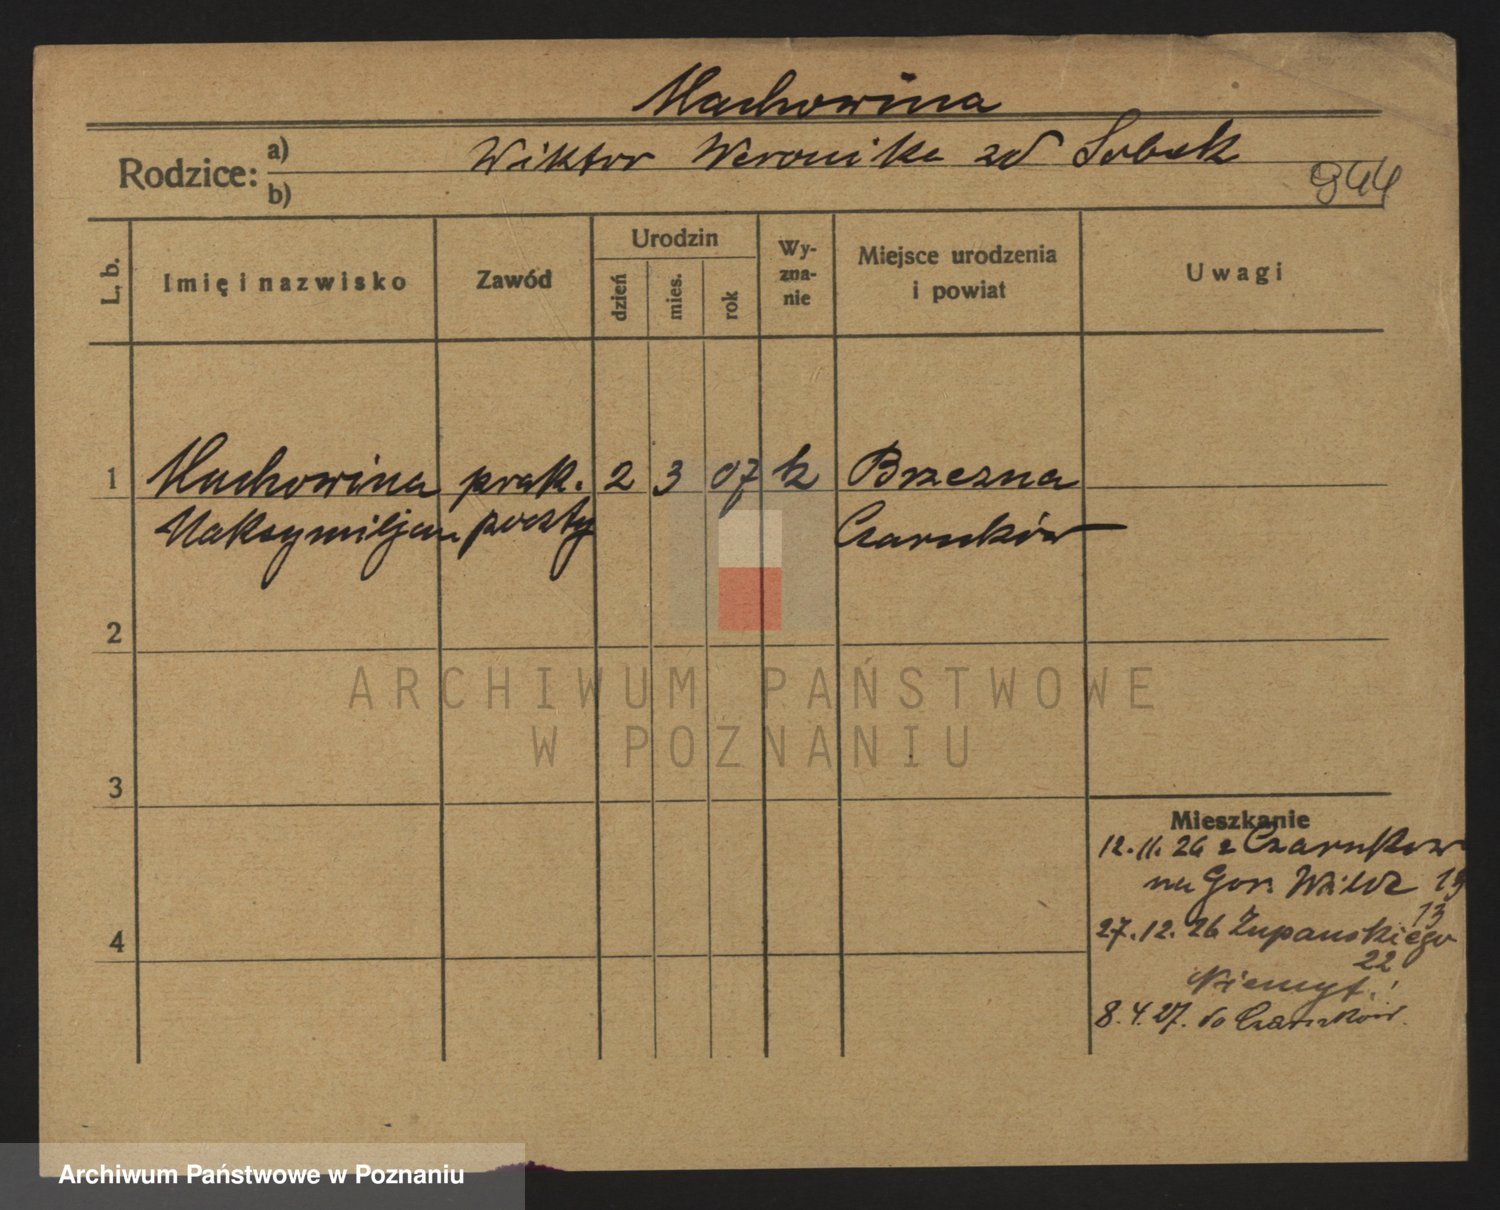 Machowina
Rodzice: a) Wiktor Weronika zd Sobek
b)
944
L. b.
Imię i nazwisko
Zawód
Urodzin
dzień
mies.
rok
Wy-
zna-
nie
Miejsce urodzenia
i powiat
Uwagi
1 Machowina prak. 2 3 07 k Brzezna
Maksymiljan poczty Czarnków
2
3
4
Mieszkanie
12.11.26 z Czarnkow
na Gor. Wilda 19
13
27.12.26 Zupanskiego
22
8.4.27. do Czarnków.
ARCHIWUM PAŃSTWOWE
W POZNANIU
Archiwum Państwowe w Poznaniu